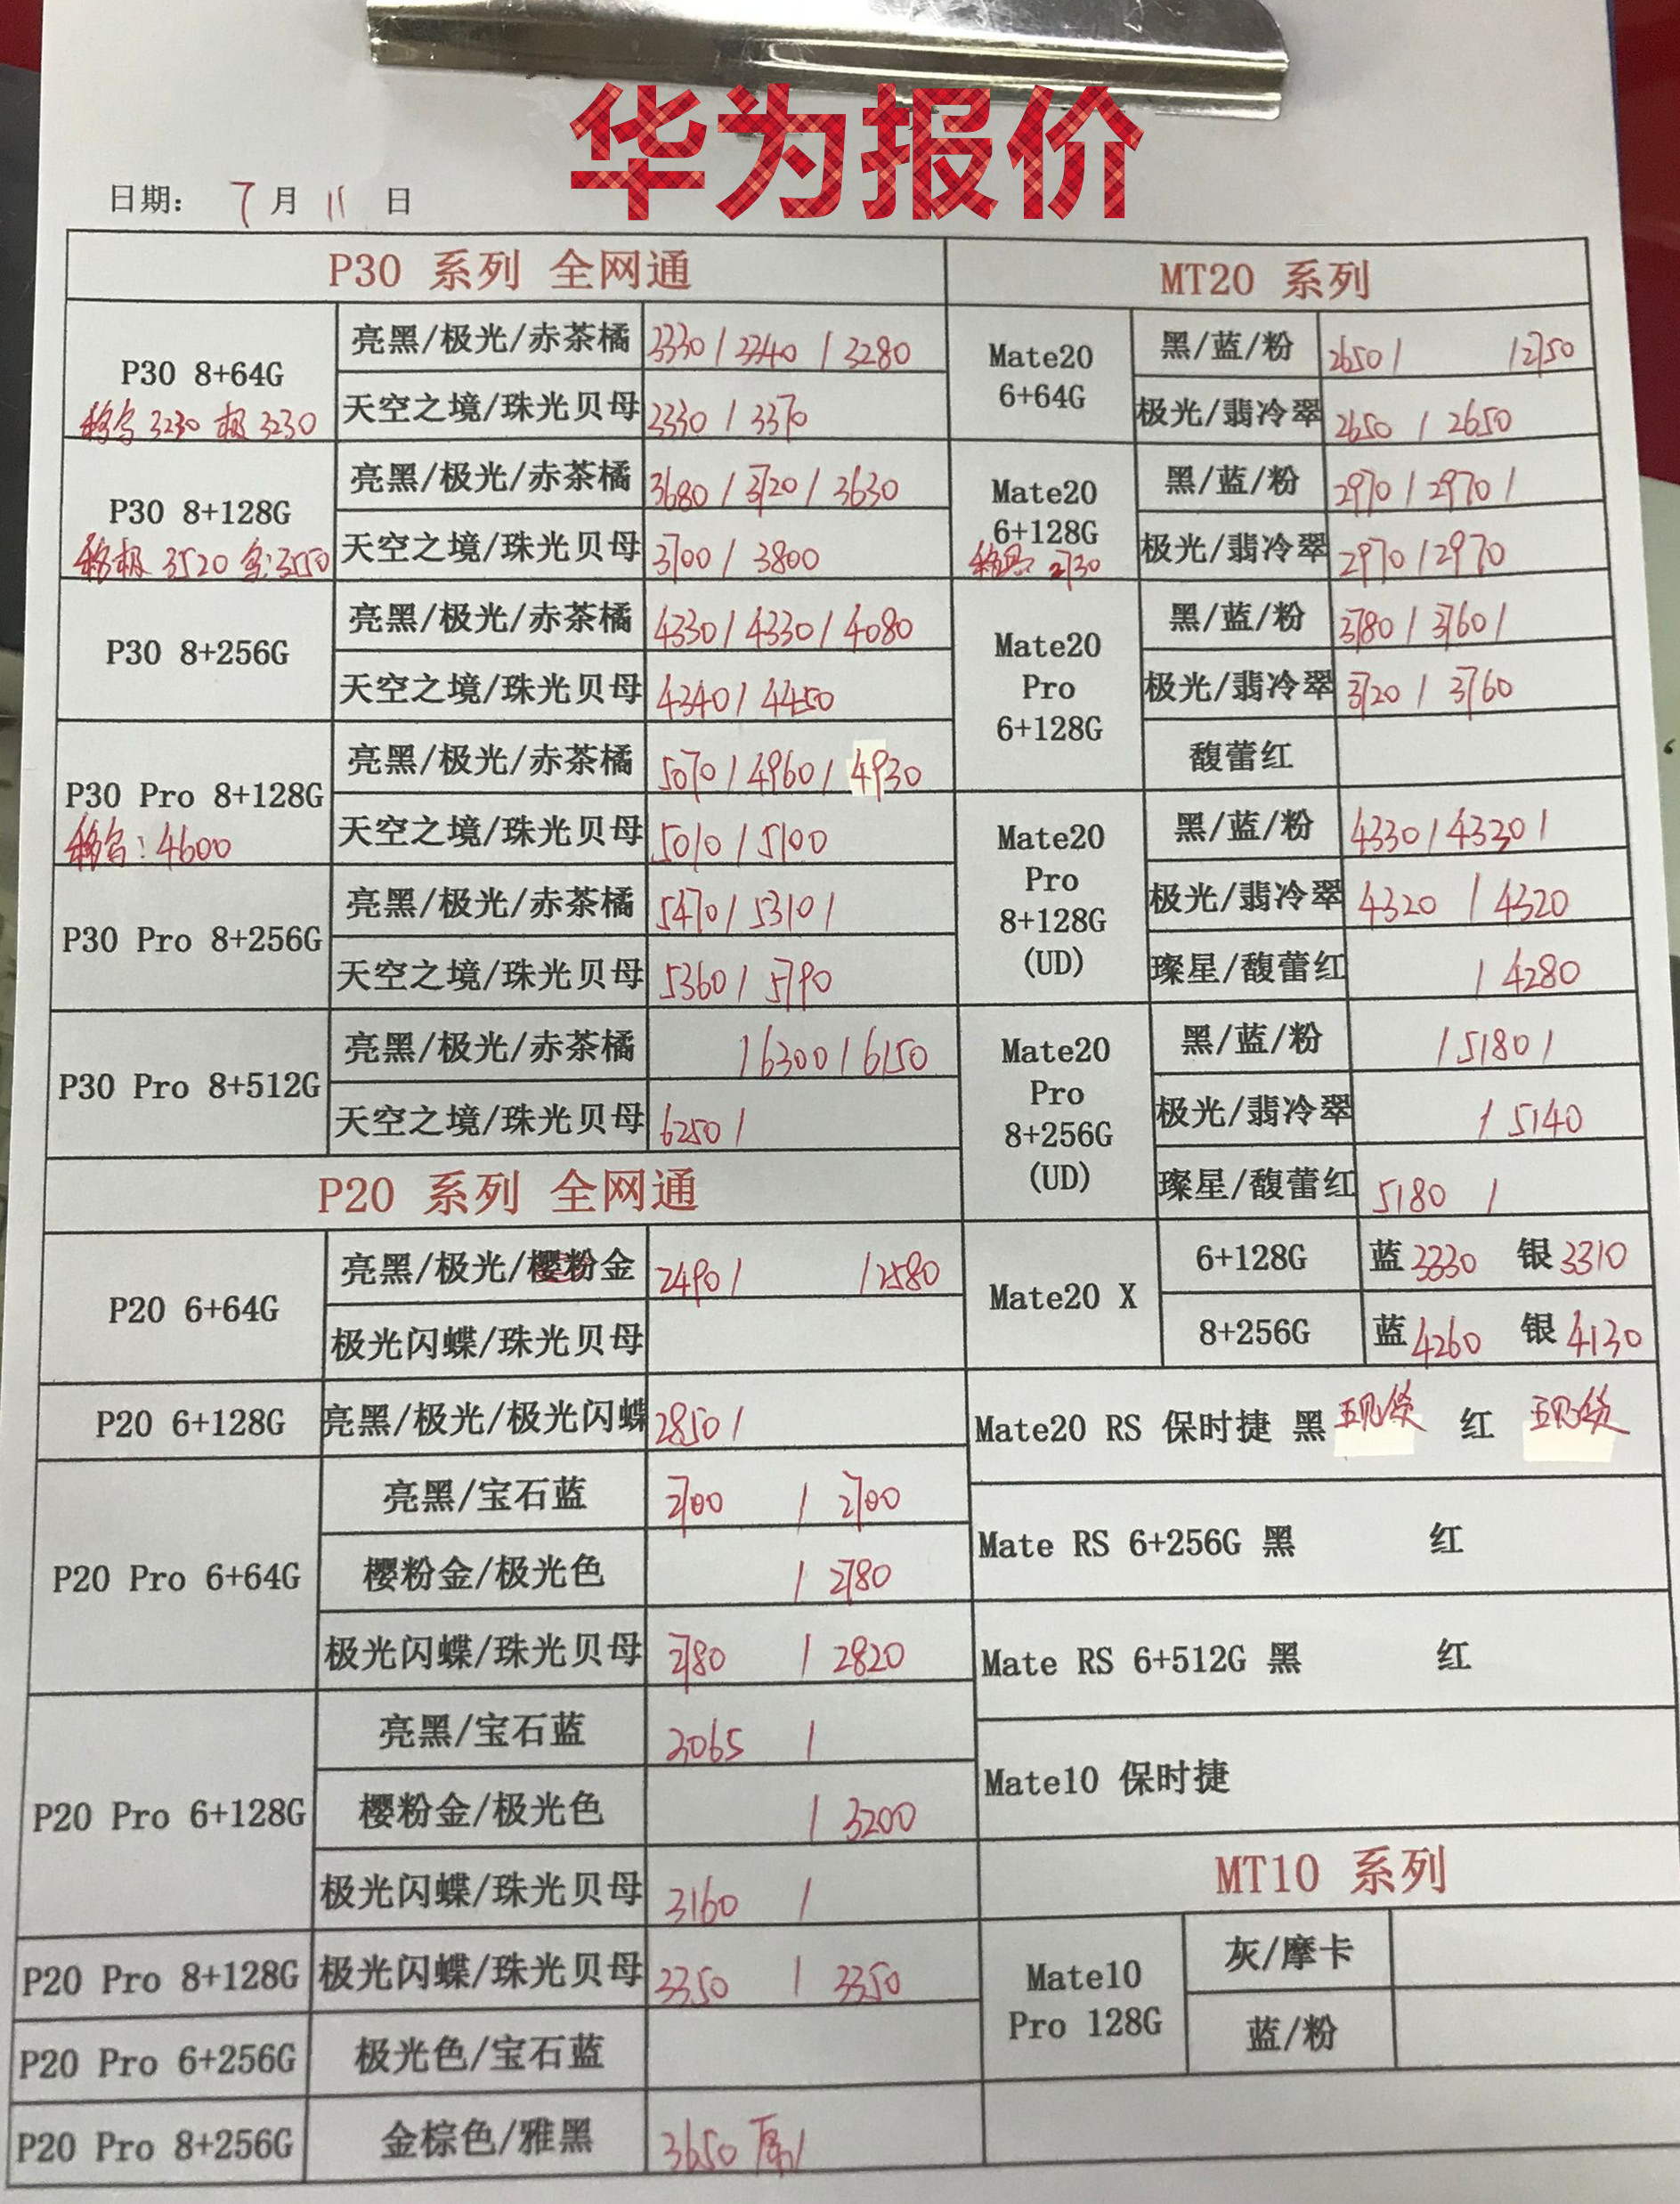 华为报价
日期： 7 月 11 日
P30 系列 全网通
P30 8+64G
3230 极 3230
亮黑/极光/赤茶橘 3330 / 3340 / 3280
天空之境/珠光贝母 3330 / 3370
P30 8+128G
移极 3520 3550
亮黑/极光/赤茶橘 3680 / 3720 / 3630
天空之境/珠光贝母 3700 / 3800
P30 8+256G
亮黑/极光/赤茶橘 4330 / 4330 / 4080
天空之境/珠光贝母 4340 / 4450
P30 Pro 8+128G
: 4600
亮黑/极光/赤茶橘 5070 / 4960 / 4930
天空之境/珠光贝母 5010 / 5100
P30 Pro 8+256G
亮黑/极光/赤茶橘 5470 / 5310 /
天空之境/珠光贝母 5360 / 5790
P30 Pro 8+512G
亮黑/极光/赤茶橘 / 6300 / 6150
天空之境/珠光贝母 6250 /
P20 系列 全网通
P20 6+64G
亮黑/极光/樱粉金 2490 / / 2580
极光闪蝶/珠光贝母
P20 6+128G
亮黑/极光/极光闪蝶 2850 /
P20 Pro 6+64G
亮黑/宝石蓝 2700 / 2700
樱粉金/极光色 / 2780
极光闪蝶/珠光贝母 2780 / 2820
P20 Pro 6+128G
亮黑/宝石蓝 3065 /
樱粉金/极光色 / 3200
极光闪蝶/珠光贝母 3160 /
P20 Pro 8+128G 极光闪蝶/珠光贝母 3350 / 3350
P20 Pro 6+256G 极光色/宝石蓝
P20 Pro 8+256G 金棕色/雅黑 3650 /
MT20 系列
Mate20
6+64G
黑/蓝/粉 2650 / / 2750
极光/翡冷翠 2650 / 2650
Mate20
6+128G
2730
黑/蓝/粉 2970 / 2970 /
极光/翡冷翠 2970 / 2970
Mate20
Pro
6+128G
黑/蓝/粉 3780 / 3760 /
极光/翡冷翠 3720 / 3760
馥蕾红
Mate20
Pro
8+128G
(UD)
黑/蓝/粉 4330 / 4320 /
极光/翡冷翠 4320 / 4320
璨星/馥蕾红 / 4280
Mate20
Pro
8+256G
(UD)
黑/蓝/粉 / 5180 /
极光/翡冷翠 / 5140
璨星/馥蕾红 5180 /
Mate20 X
6+128G 蓝 3330 银 3310
8+256G 蓝 4260 银 4130
Mate20 RS 保时捷 黑 现货 红 现货
Mate RS 6+256G 黑 红
Mate RS 6+512G 黑 红
Mate10 保时捷
MT10 系列
Mate10
Pro 128G
灰/摩卡
蓝/粉